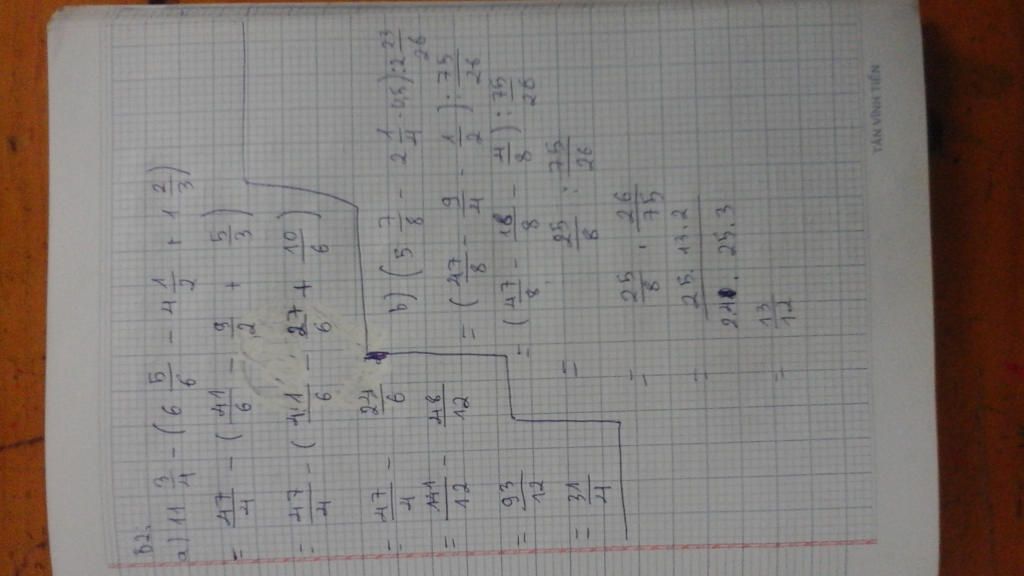 B2:
a) 11 3/4 - (6 5/6 - 4 1/2 + 1 2/3)
= 47/4 - (41/6 - 9/2 + 5/3)
= 47/4 - (41/6 - 27/6 + 10/6)
= 47/4 - 24/6
= 141/12 - 48/12
= 93/12
= 31/4
b) (5 7/8 - 2 1/4 - 0,5) : 2 23/26
= (47/8 - 9/4 - 1/2) : 75/26
= (47/8 - 18/8 - 4/8) : 75/26
= 25/8 : 75/26
= 25/8 . 26/75
= 25.13.2 / . 25.3
= 13/12
TÂN VĨNH TIẾN